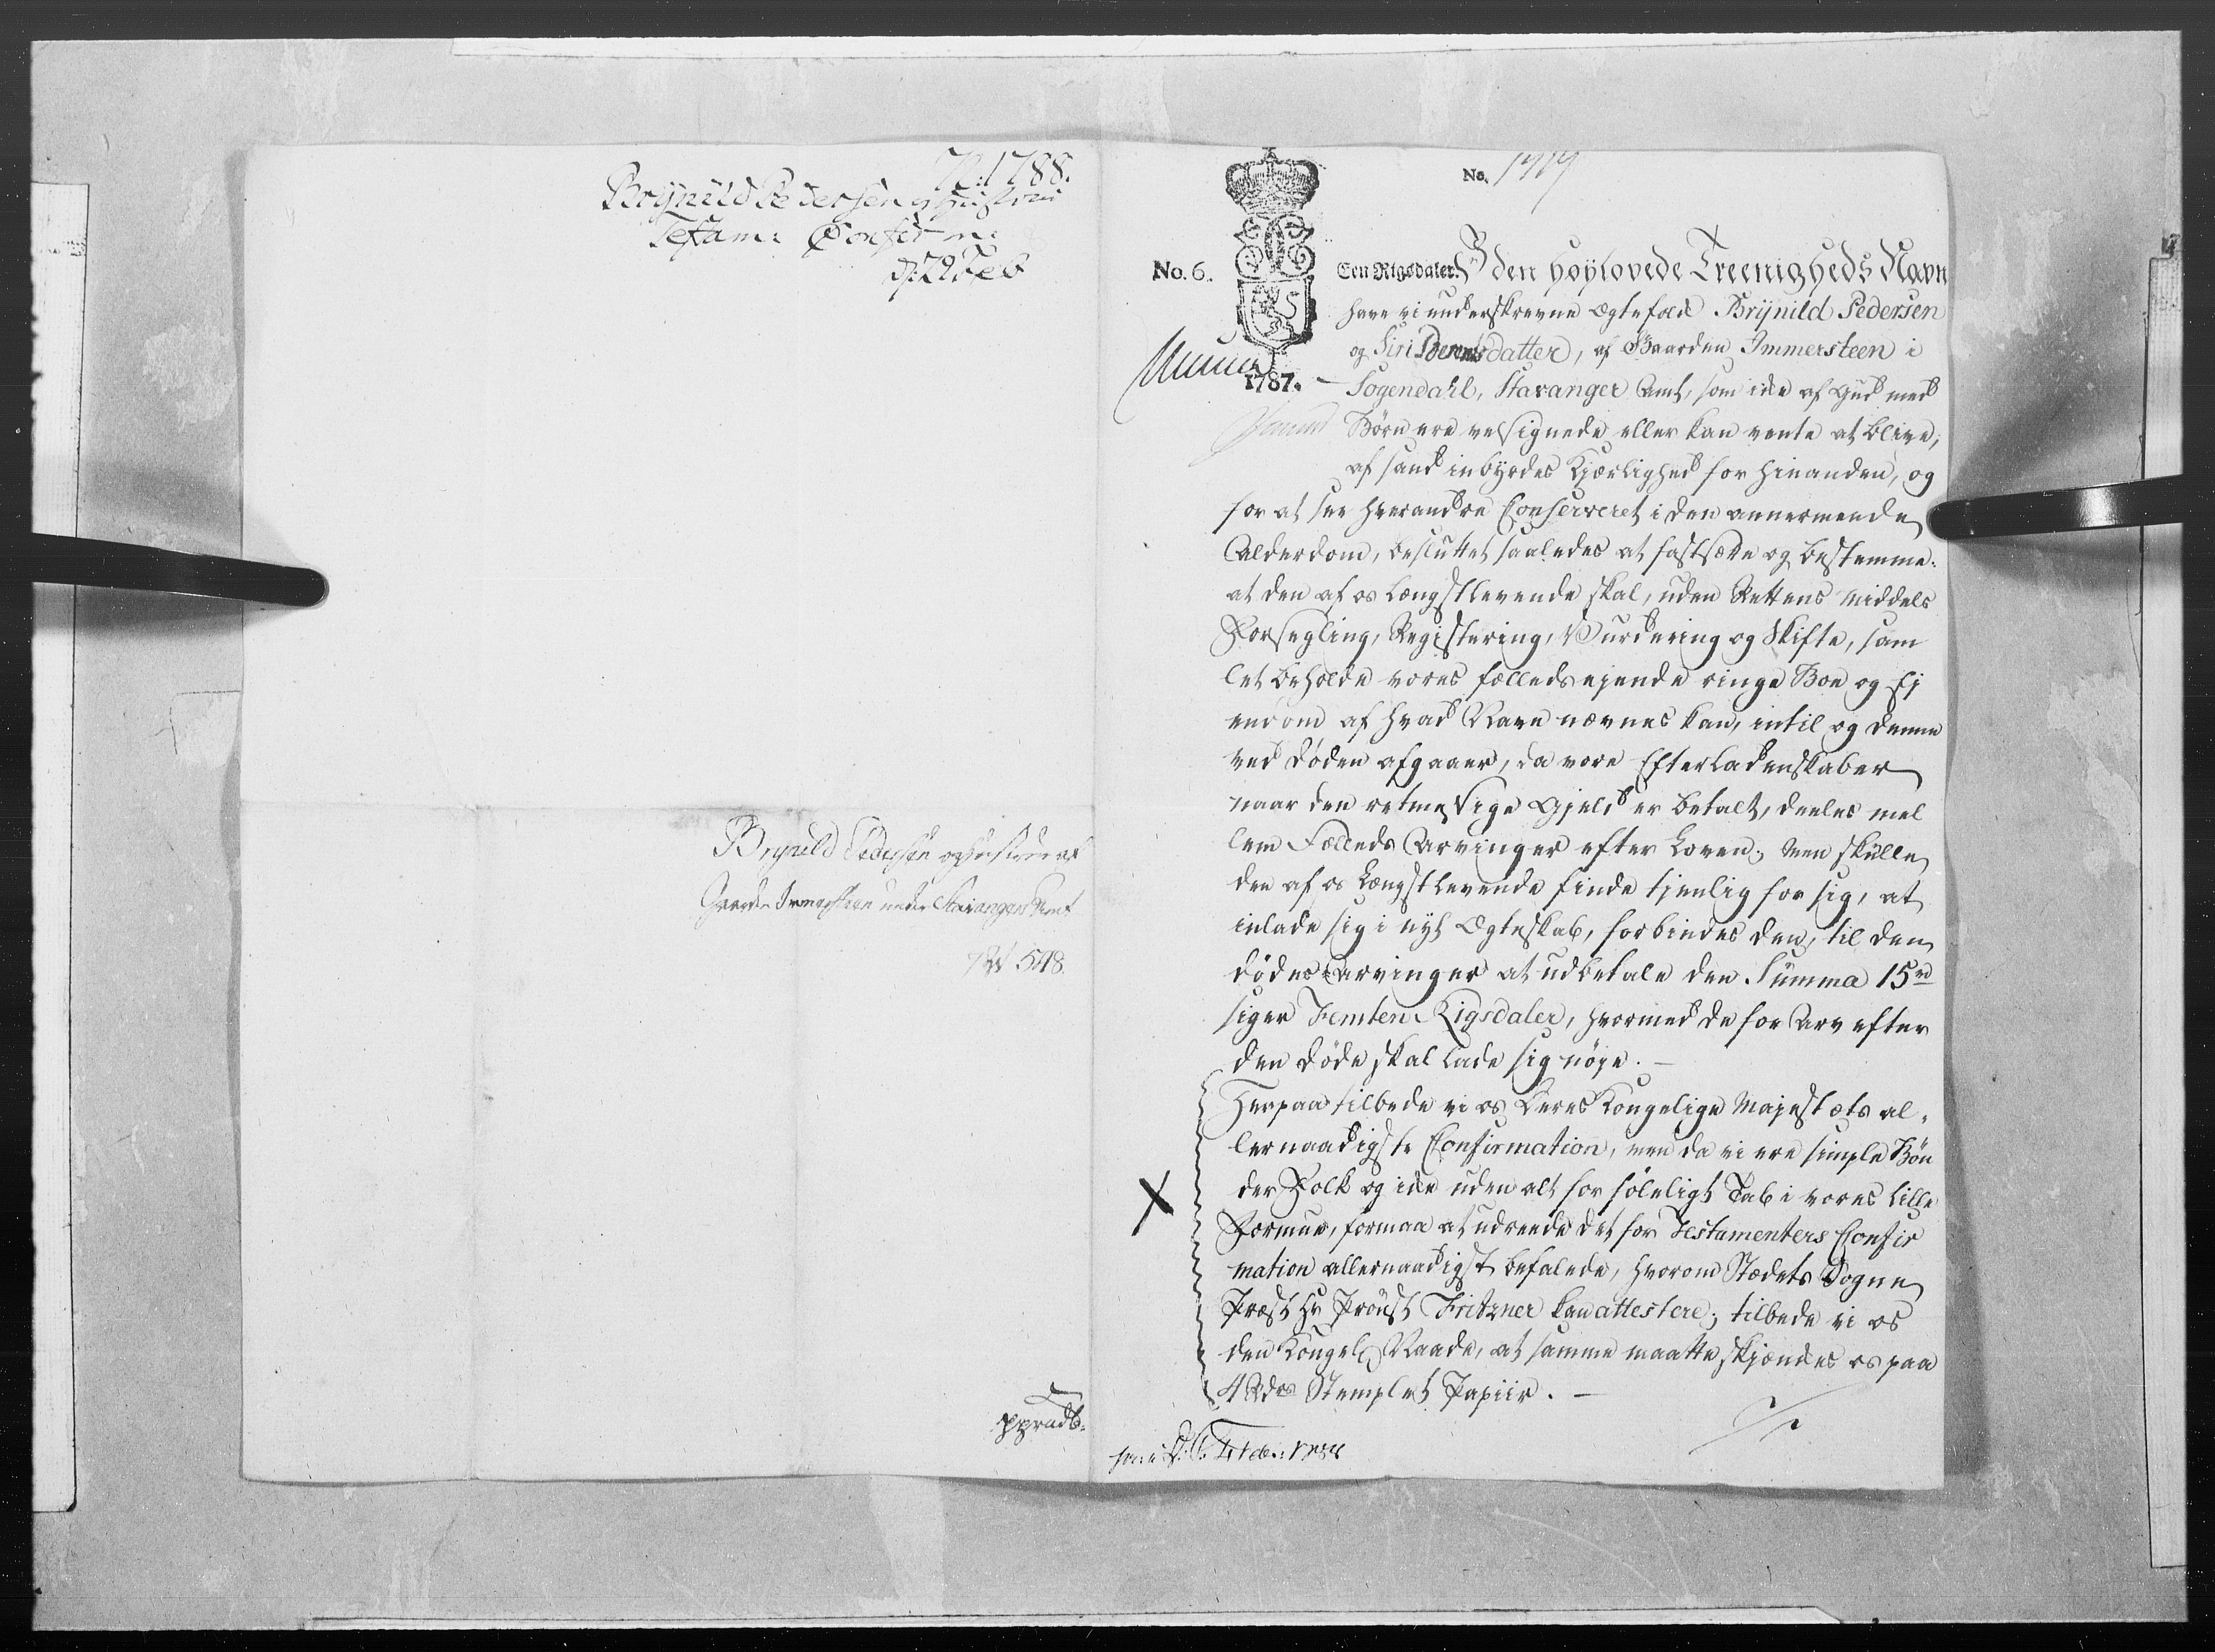 72:1788.
Brÿnild Pedersen og Hustrues
Testam: Confirm:
d: 29 Feb
Brynild Pedersen og Hustrue af
Gaarden Immersteen under Stavanger Amt
548.
No. 1719
No. 6.
Een Rigsdaler.
1787.
I den høylovede Treenigheds Navn
have vi underskrevne Ægtefolk Brÿnild Pedersen
og Siri Berentsdatter, af Gaarden Immersteen i
Sogendahl, Stavanger Amt, som ikke af Gud med
Børn ere velsignede eller kan vente at blive,
af sand inbÿrdes Kjærlighed for hinanden, og
for at see hverandre Conserveret i den annermende
Alderdom, besluttet saaledes at fastsætte og bestemme:
at den af os Længstlevende skal, uden Rettens Middels
Forsegling, Registering, Vurdering og Skifte, sam
let beholde vores fælleds ejende ringe Boe og Ej
endom af hvad Navn nævnes kan, intil og denne
ved Døden afgaaer, da vore Efterladenskaber
naar den retmessige Gjeld er betalt, deeles mel
lem Fælleds Arvinger efter Loven; Men skulle
den af os Længstlevende finde tjenlig for sig, at
inlade sig i nyt Ægteskab, forbindes den, til den
dødes Arvinger at udbetale den Summa 15 rd
siger Femten Rigsdaler, hvormed de for Arv efter
den Døde skal lade sig nøje. —
Herpaa tilbede vi os Deres Kongelige Majestæts al-
lernaadigste Confirmation, men da vi ere simple Bøn
der Folk og ikke uden alt for føleligt Tab i vores lille
Formue, formaa at udreede det for Testamenters Confir
mation allernaadigst befalede, hvorom Stædets Sogne
Præst Hr Provst Fritzner kan attestere; tilbede vi os
den Kongel. Naade, at samme maatte skjændes os paa
4 Rdrs Stemplet Papiir. —